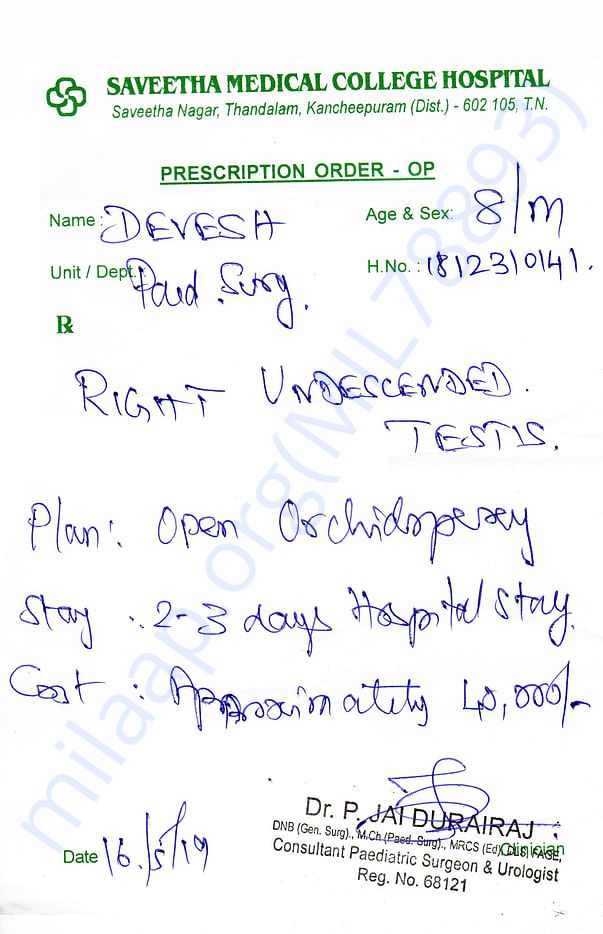 SAVEETHA MEDICAL COLLEGE HOSPITAL
Saveetha Nagar, Thandalam, Kancheepuram (Dist.) - 602 105, T.N.
PRESCRIPTION ORDER - OP
Name : DEVESH Age & Sex: 8/M
Unit / Dept. : Paed. Surg. H.No. : 1812310141.
Rx
RIGHT UNDESCENDED.
TESTIS.
Plan : Open Orchidopexy
Stay : 2-3 days Hospital stay.
Cost : Approximately 40,000/-
Dr. P. JAI DURAIRAJ
DNB (Gen. Surg)., M.Ch (Paed. Surg)., MRCS (Ed), DLS, FAGE,
Clinician
Consultant Paediatric Surgeon & Urologist
Reg. No. 68121
Date 16/5/19
milaap.org(MIL78893)